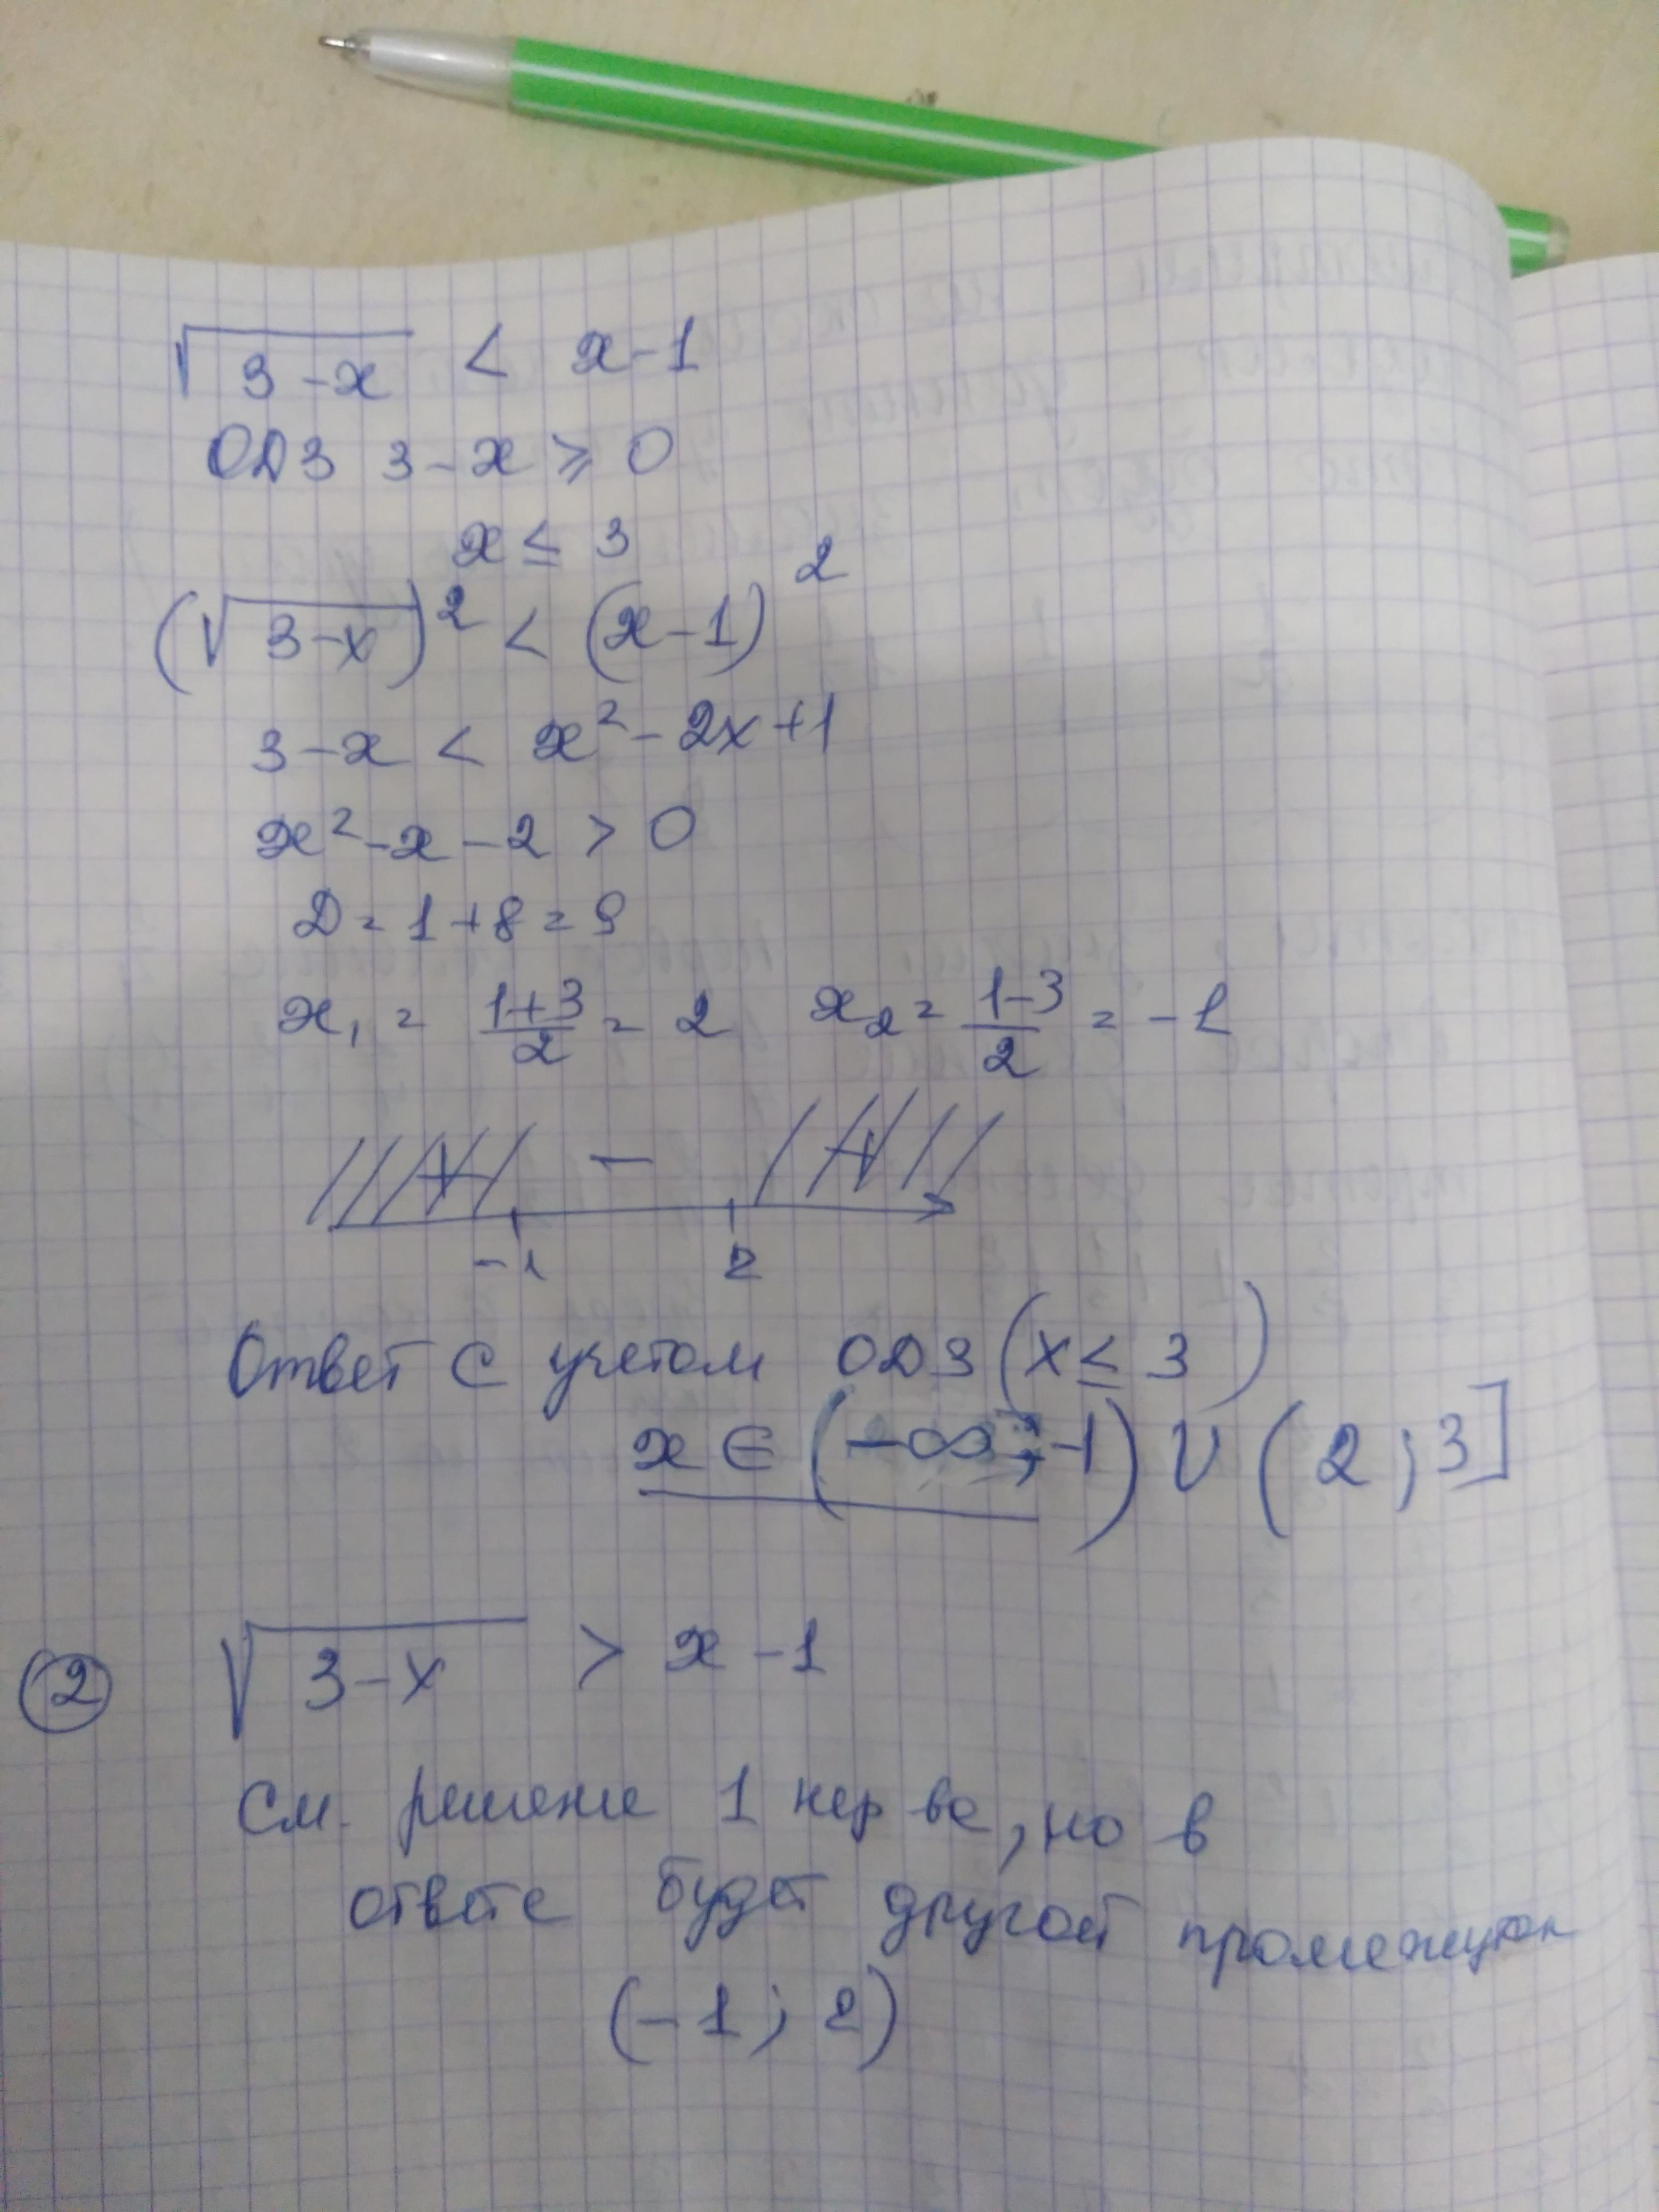 √(3-x) < x-1
ОДЗ 3-x ≥ 0
x ≤ 3
(√(3-x))² < (x-1)²
3-x < x²-2x+1
x²-x-2 > 0
D = 1+8 = 9
x₁ = (1+3)/2 = 2 x₂ = (1-3)/2 = -1
+ - +
-1 2
Ответ с учетом ОДЗ (x ≤ 3)
x ∈ (-∞; -1) ∪ (2; 3]
2 √(3-x) > x-1
См. решение 1 нер ва, но в
ответе будет другой промежуток
(-1; 2)